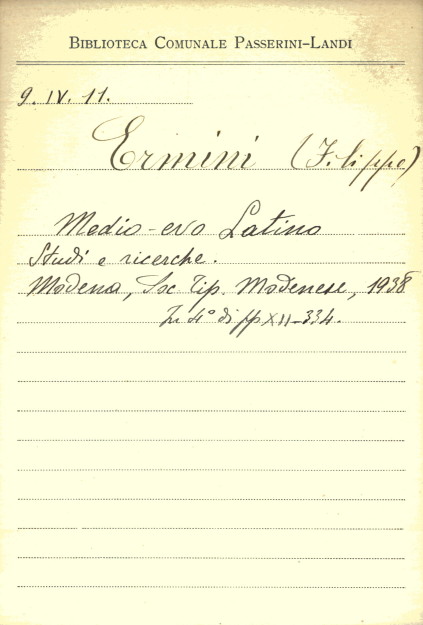 BIBLIOTECA COMUNALE PASSERINI-LANDI
9. IV. 11.
Ermini (Filippo)
Medio-evo Latino
Studi e ricerche.
Modena, Soc Tip. Modenese, 1938
In 4° di pp XII-334.